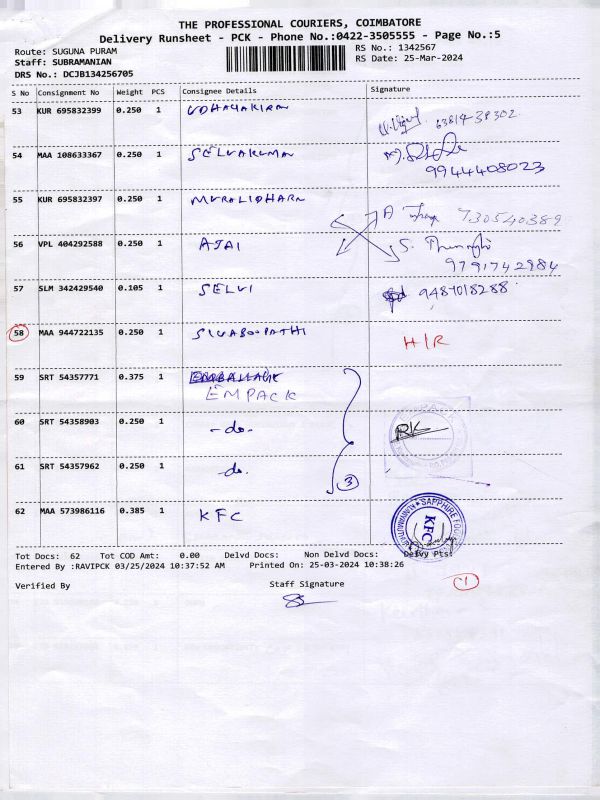 THE PROFESSIONAL COURIERS, COIMBATORE
Delivery Runsheet - PCK - Phone No.:0422-3505555 - Page No.:5
Route: SUGUNA PURAM RS No.: 1342567
Staff: SUBRAMANIAN RS Date: 25-Mar-2024
DRS No.: DCJB134256705
S No Consignment No Weight PCS Consignee Details Signature
53 KUR 695832399 0.250 1 UDHAYAKIRAN
54 MAA 108633367 0.250 1 SELVAKUMAR
9944408023
55 KUR 695832397 0.250 1 MURALIDHARN
A 730540389
56 VPL 404292588 0.250 1 AJAI S.
9791742984
57 SLM 342429540 0.105 1 SELVI 9487018288
58 MAA 944722135 0.250 1 SIVABOOPATHI H/R
59 SRT 54357771 0.375 1
EMPACK
60 SRT 54358903 0.250 1 -do- RK
61 SRT 54357962 0.250 1 -do-
3
62 MAA 573986116 0.385 1 KFC KFC
Tot Docs: 62 Tot COD Amt: 0.00 Delvd Docs: Non Delvd Docs: Delvy Pts:
Entered By :RAVIPCK 03/25/2024 10:37:52 AM Printed On: 25-03-2024 10:38:26
Verified By Staff Signature